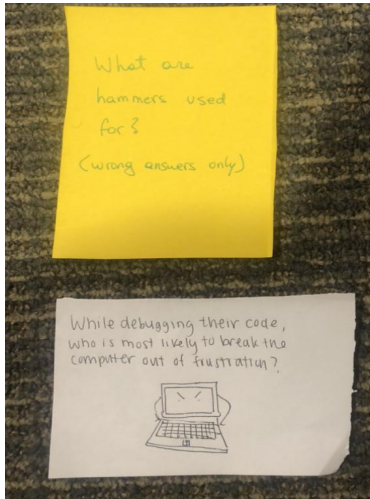 What are
hammers used
for?
(wrong answers only)
While debugging their code,
who is most likely to break the
computer out of frustration?